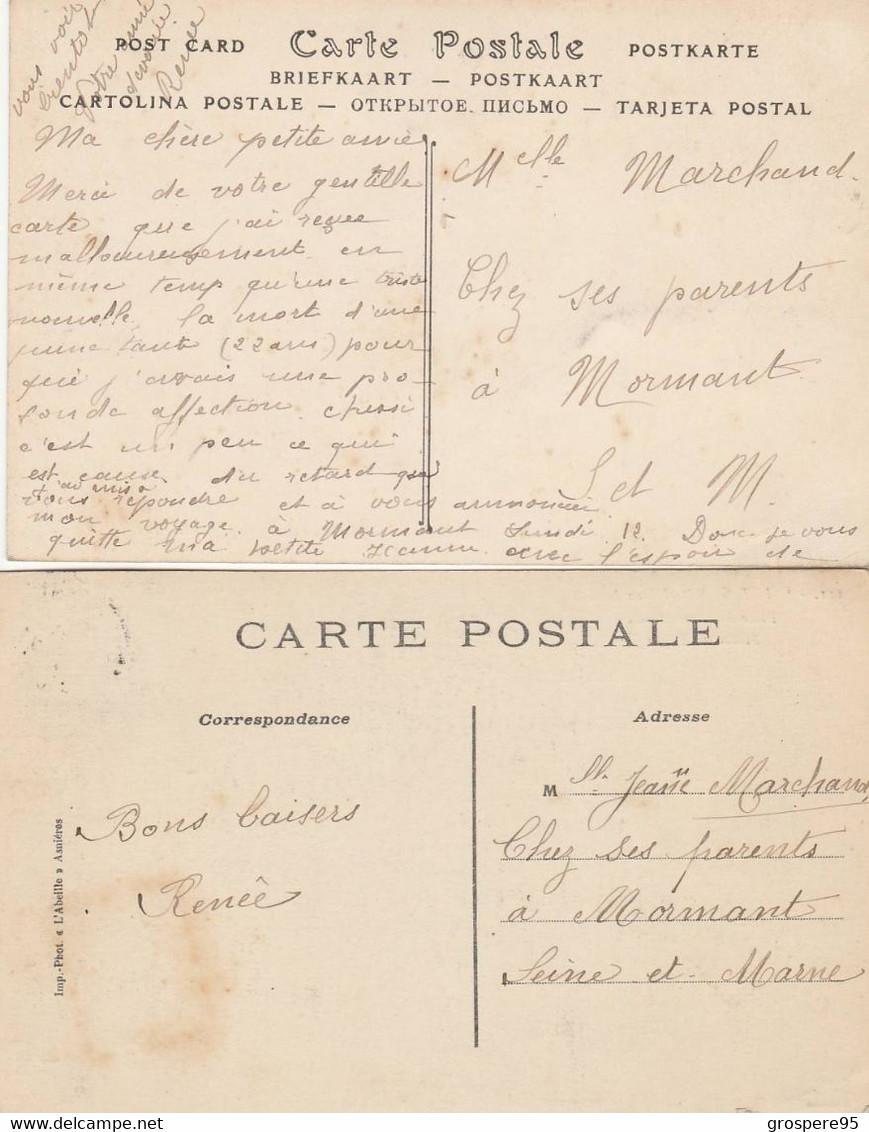 POST CARD Carte Postale POSTKARTE
BRIEFKAART — POSTKAART
CARTOLINA POSTALE — ОТКРЫТОЕ ПИСЬМО — TARJETA POSTAL
Ma chère petite amie
Merci de votre gentille
carte que j'ai reçue
malheureusement en
même temp qu'une triste
nouvelle, la mort d'une
jeune tante (22 ans) pour
qui j'avais une pro-
fonde affection
c'est un peu ce qui
est cause du retard que
j'ai mis à
vous répondre et à vous annoncer
mon voyage à Mormant Lundi 12. Donc je vous
quitte ma petite Jeanne avec l'espoir de
vous voir
bientôt
Votre amie
dévouée
Renée
Melle Marchand.
Chez ses parents
à Mormant
S. et M.
CARTE POSTALE
Correspondance
Adresse
Bons baisers
Renée
Mlle Jeanne Marchand,
Chez ses parents
à Mormant
Seine et Marne
Imp.-Phot. « L'Abeille » Asnières
https://www.delcampe.net
grospere95